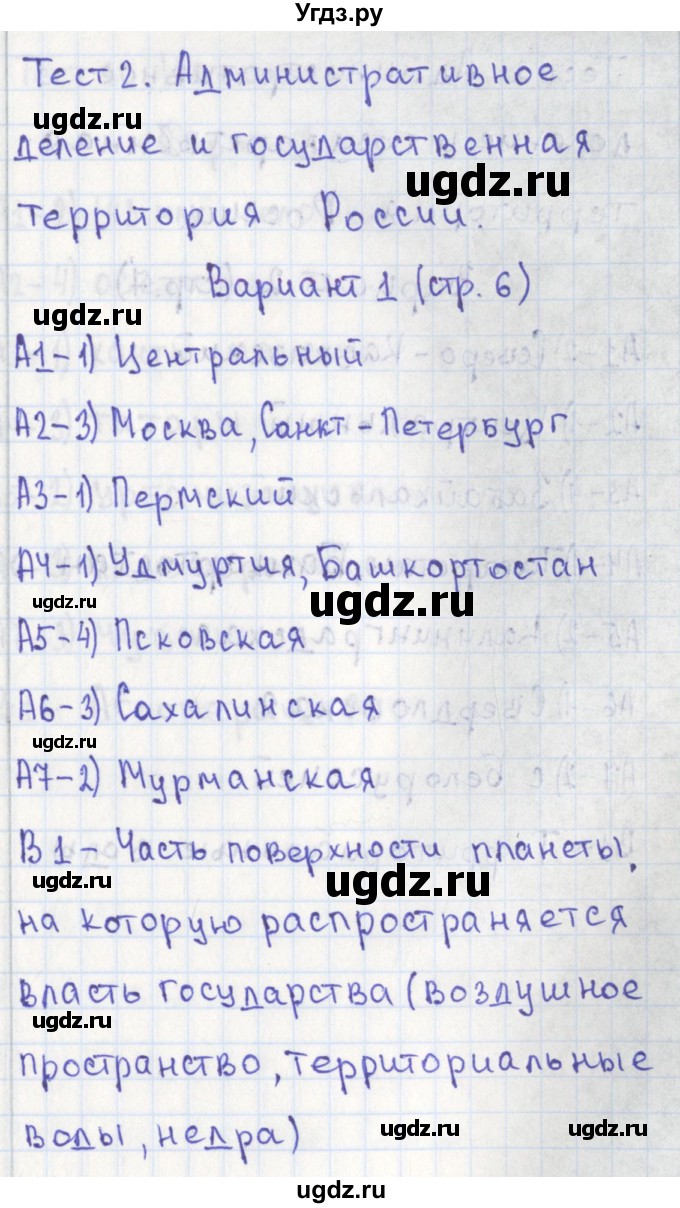 Угдз.ру
Тест 2. Административное
ugdz.ru
деление и государственная
ugdz.ru
территория России.
Вариант 1 (стр. 6)
ugdz.ru
А1-1) Центральный
А2-3) Москва, Санкт-Петербург
А3-1) Пермский
А4-1) Удмуртия, Башкортостан
ugdz.ru ugdz.ru
А5-4) Псковская
А6-3) Сахалинская
ugdz.ru
А7-2) Мурманская
В1 - Часть поверхности планеты,
ugdz.ru ugdz.ru
на которую распространяется
власть государства (воздушное
ugdz.ru
пространство, территориальные
воды, недра)
ugdz.ru ugdz.ru
ugdz.ru